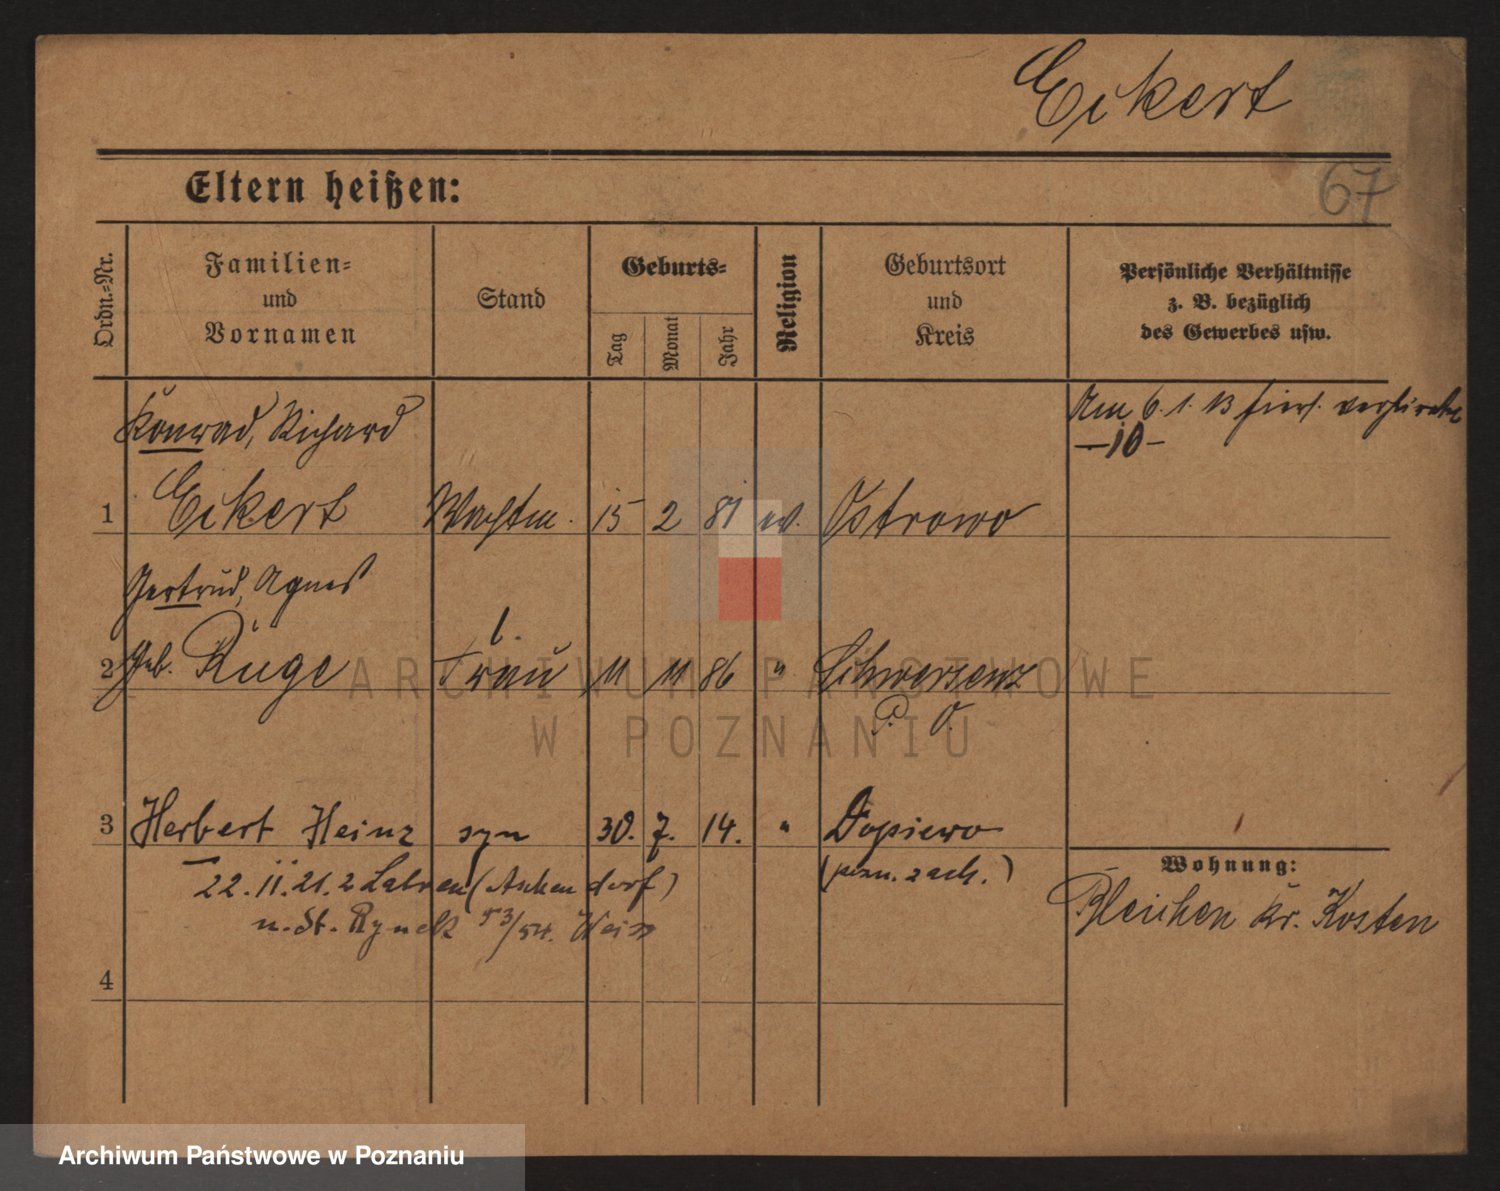 Eckert
67
Eltern heißen:
Ordn.-Nr.
Familien-
und
Vornamen
Stand
Geburts-
Tag
Monat
Jahr
Religion
Geburtsort
und
Kreis
Persönliche Verhältnisse
z. B. bezüglich
des Gewerbes usw.
Konrad, Richard
Am 6. 1. 13 hier
—10—
1 Eckert Wachtm. 15 2 81 ev. Ostrowo
Gertrud, Agnes
2 geb. Ruge Frau 11 11 86 " Schwersenz
P. O.
3 Herbert Heinz syn 30. 7. 14. " Dopiewo
22. 11. 21. z (Aschendorf)
(pozn. zach.)
n. St. Rynek 53/54. Weiss
Wohnung:
Bleichen Kr. Kosten
4
ARCHIWUM PAŃSTWOWE
W POZNANIU
Archiwum Państwowe w Poznaniu